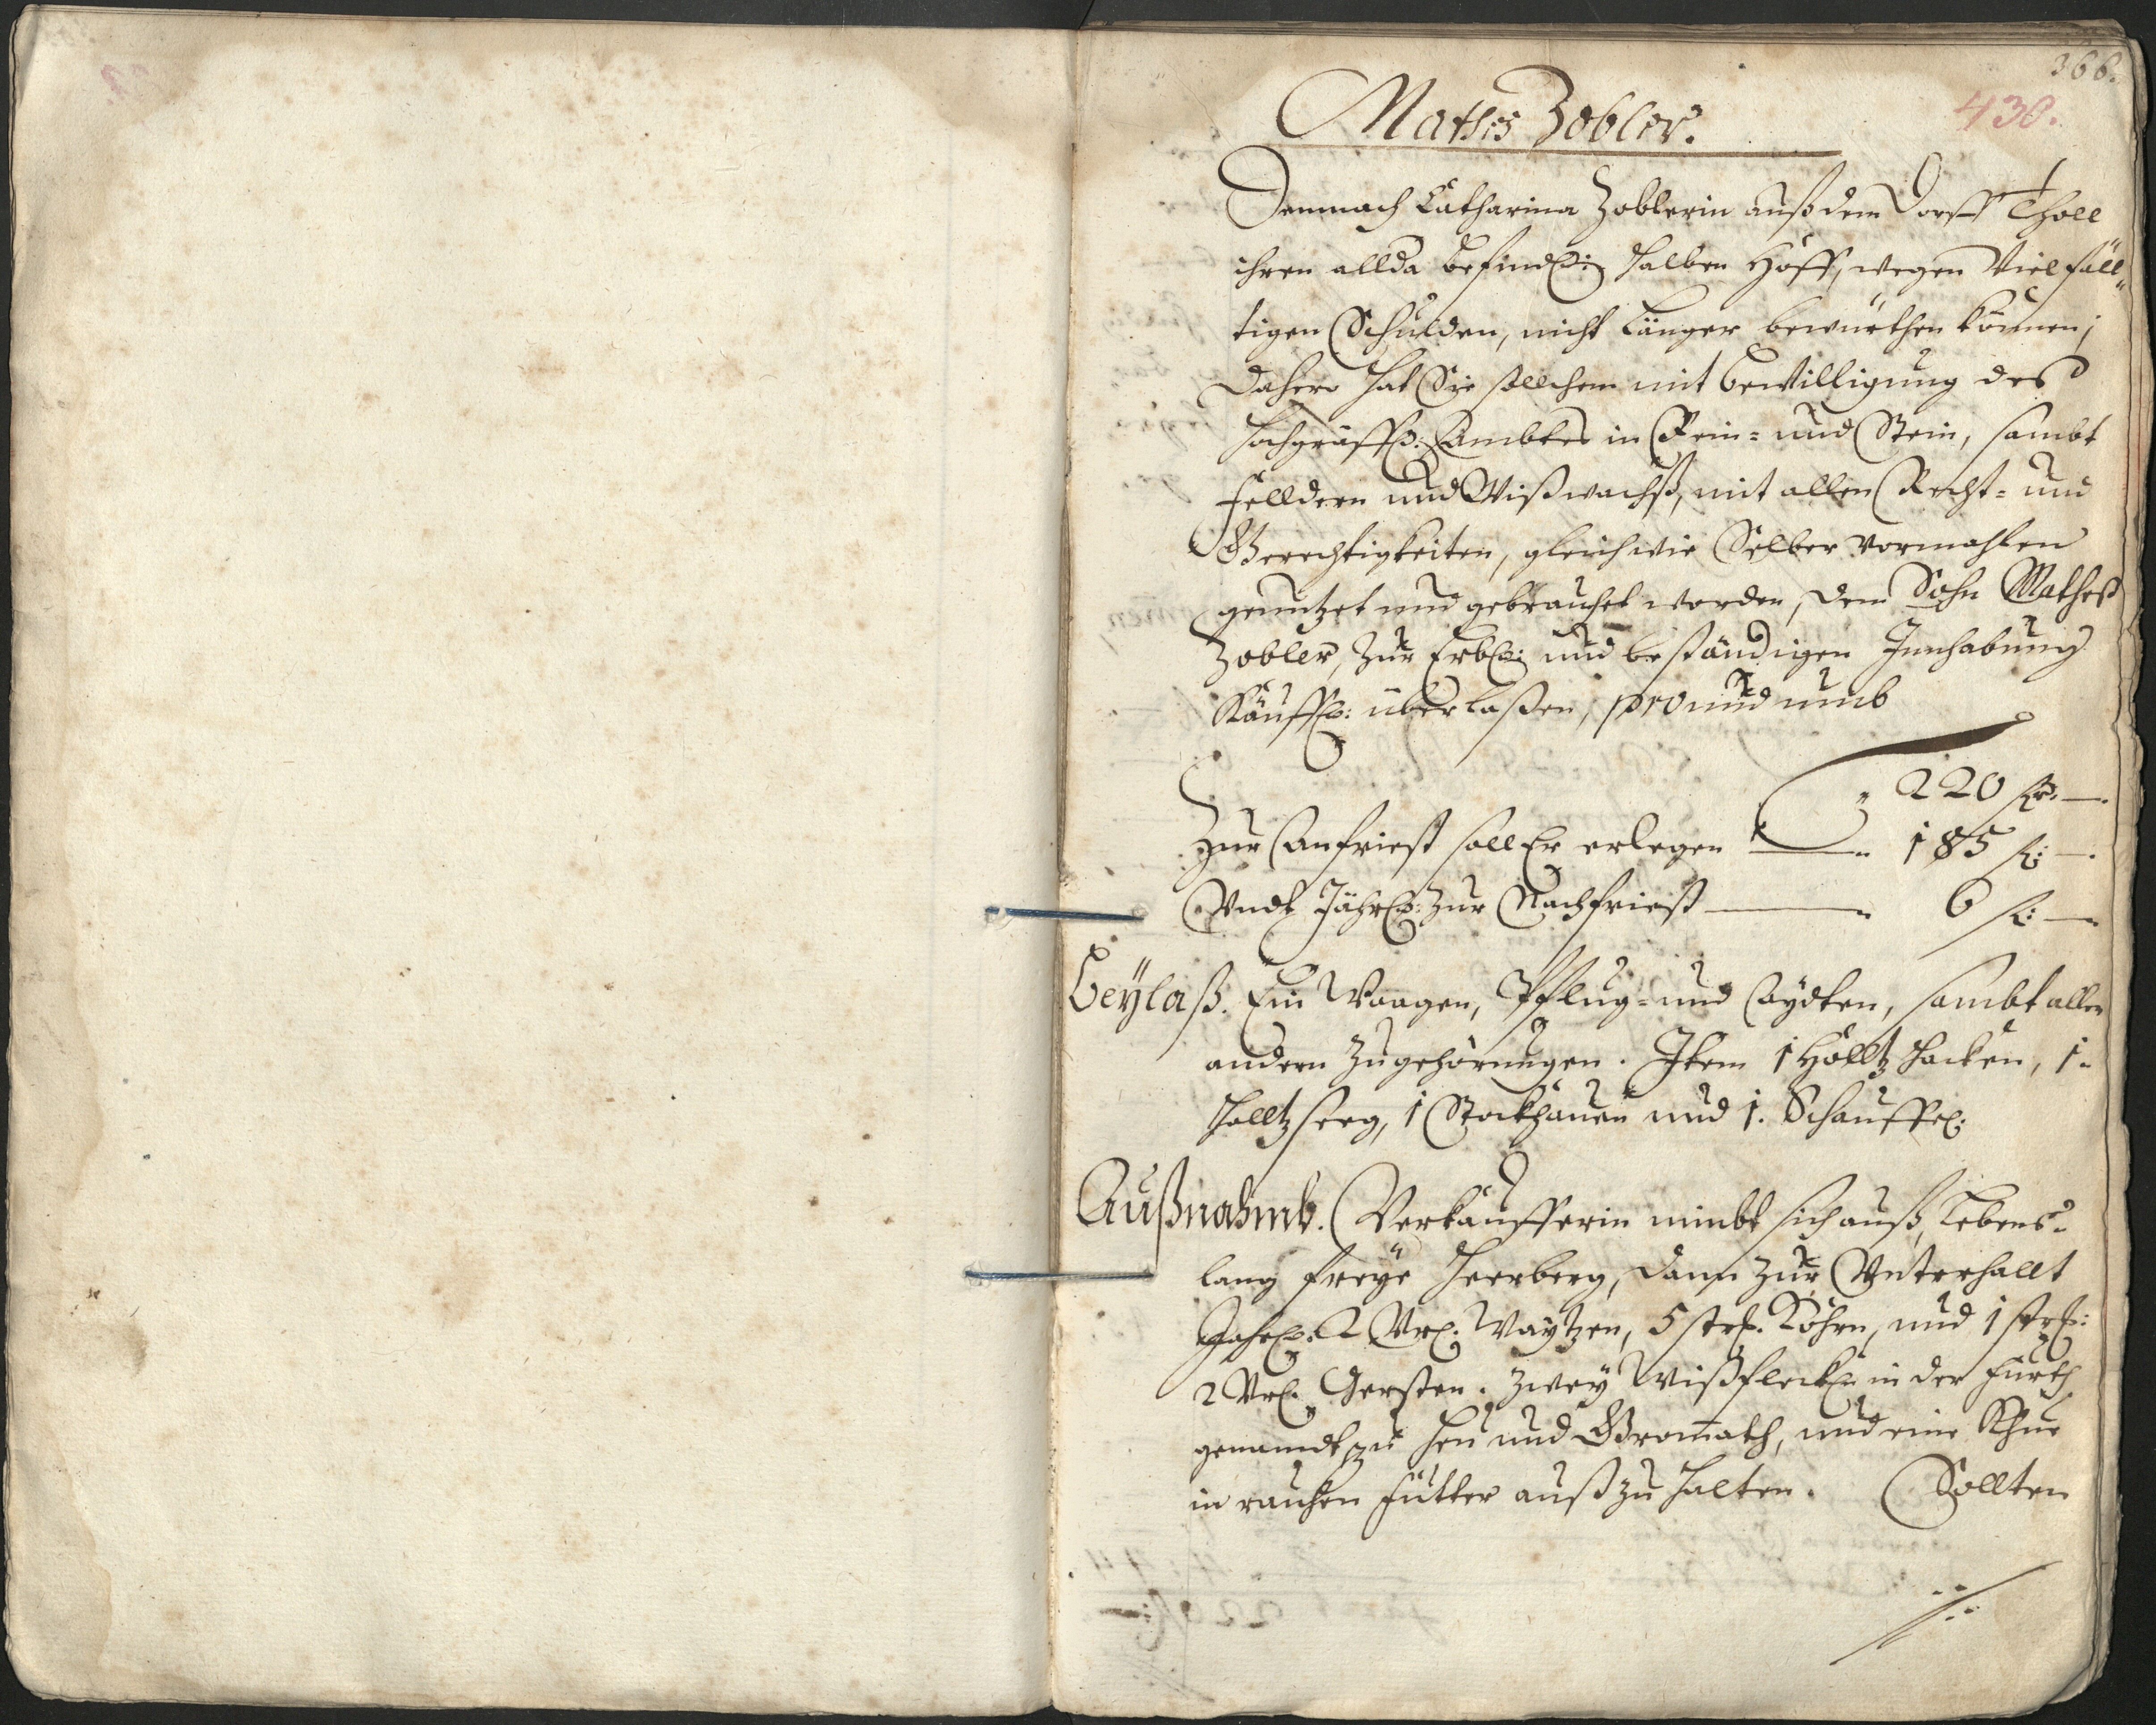 366.
430.
Mathis Zobler.
Demnach Catharina Zoblerin auß dem Dorff Tholl
ihren allda befindl: halben Hoff, wegen Vielfäll„
tigen Schulden, nicht länger bewürthen können;
Dahero hat Sie sollchem mit bewilligung des
Hochgräffl: Ambtes in Rein= und Stein, sambt
Felldern und Wißwachß, mit allen Recht= und
Gerechtigkeiten, gleich wie Selber vormahlen
genutzet und gebrauchet worden, dem Sohn Matheß
Zobler, zur Erbl: und beständigen Innhabung
Käuffl: überlaßen, pro und umb
220 fl: —.
Zur Anfriest soll Er erlegen — 185 fl: —.
Undt Jährl: zur Nachfriest — 6 fl: —
Beÿlaß. Ein Waagen, Pflug= und Aydten, sambt allen
andern Zugehörungen. Item 1 Holltz Hacken, 1.
Holltz seeg, 1 Stockhauen und 1. Schauffel:
Außnahmb. Verkäufferin nimbt sich auß, Lebens=
lang freÿe Heerberg, dann zur Unterhallt
Jahrl: 2 Vrl. Waÿtzen, 5 strl. Kohrn, und 1 strl:
2 Vrl. Gersten. Zweÿ Wißfleckl in der Furth
genandt zu Heu und Gromath, und eine Khue
in rauhen Futter auß zu halten. Sollten